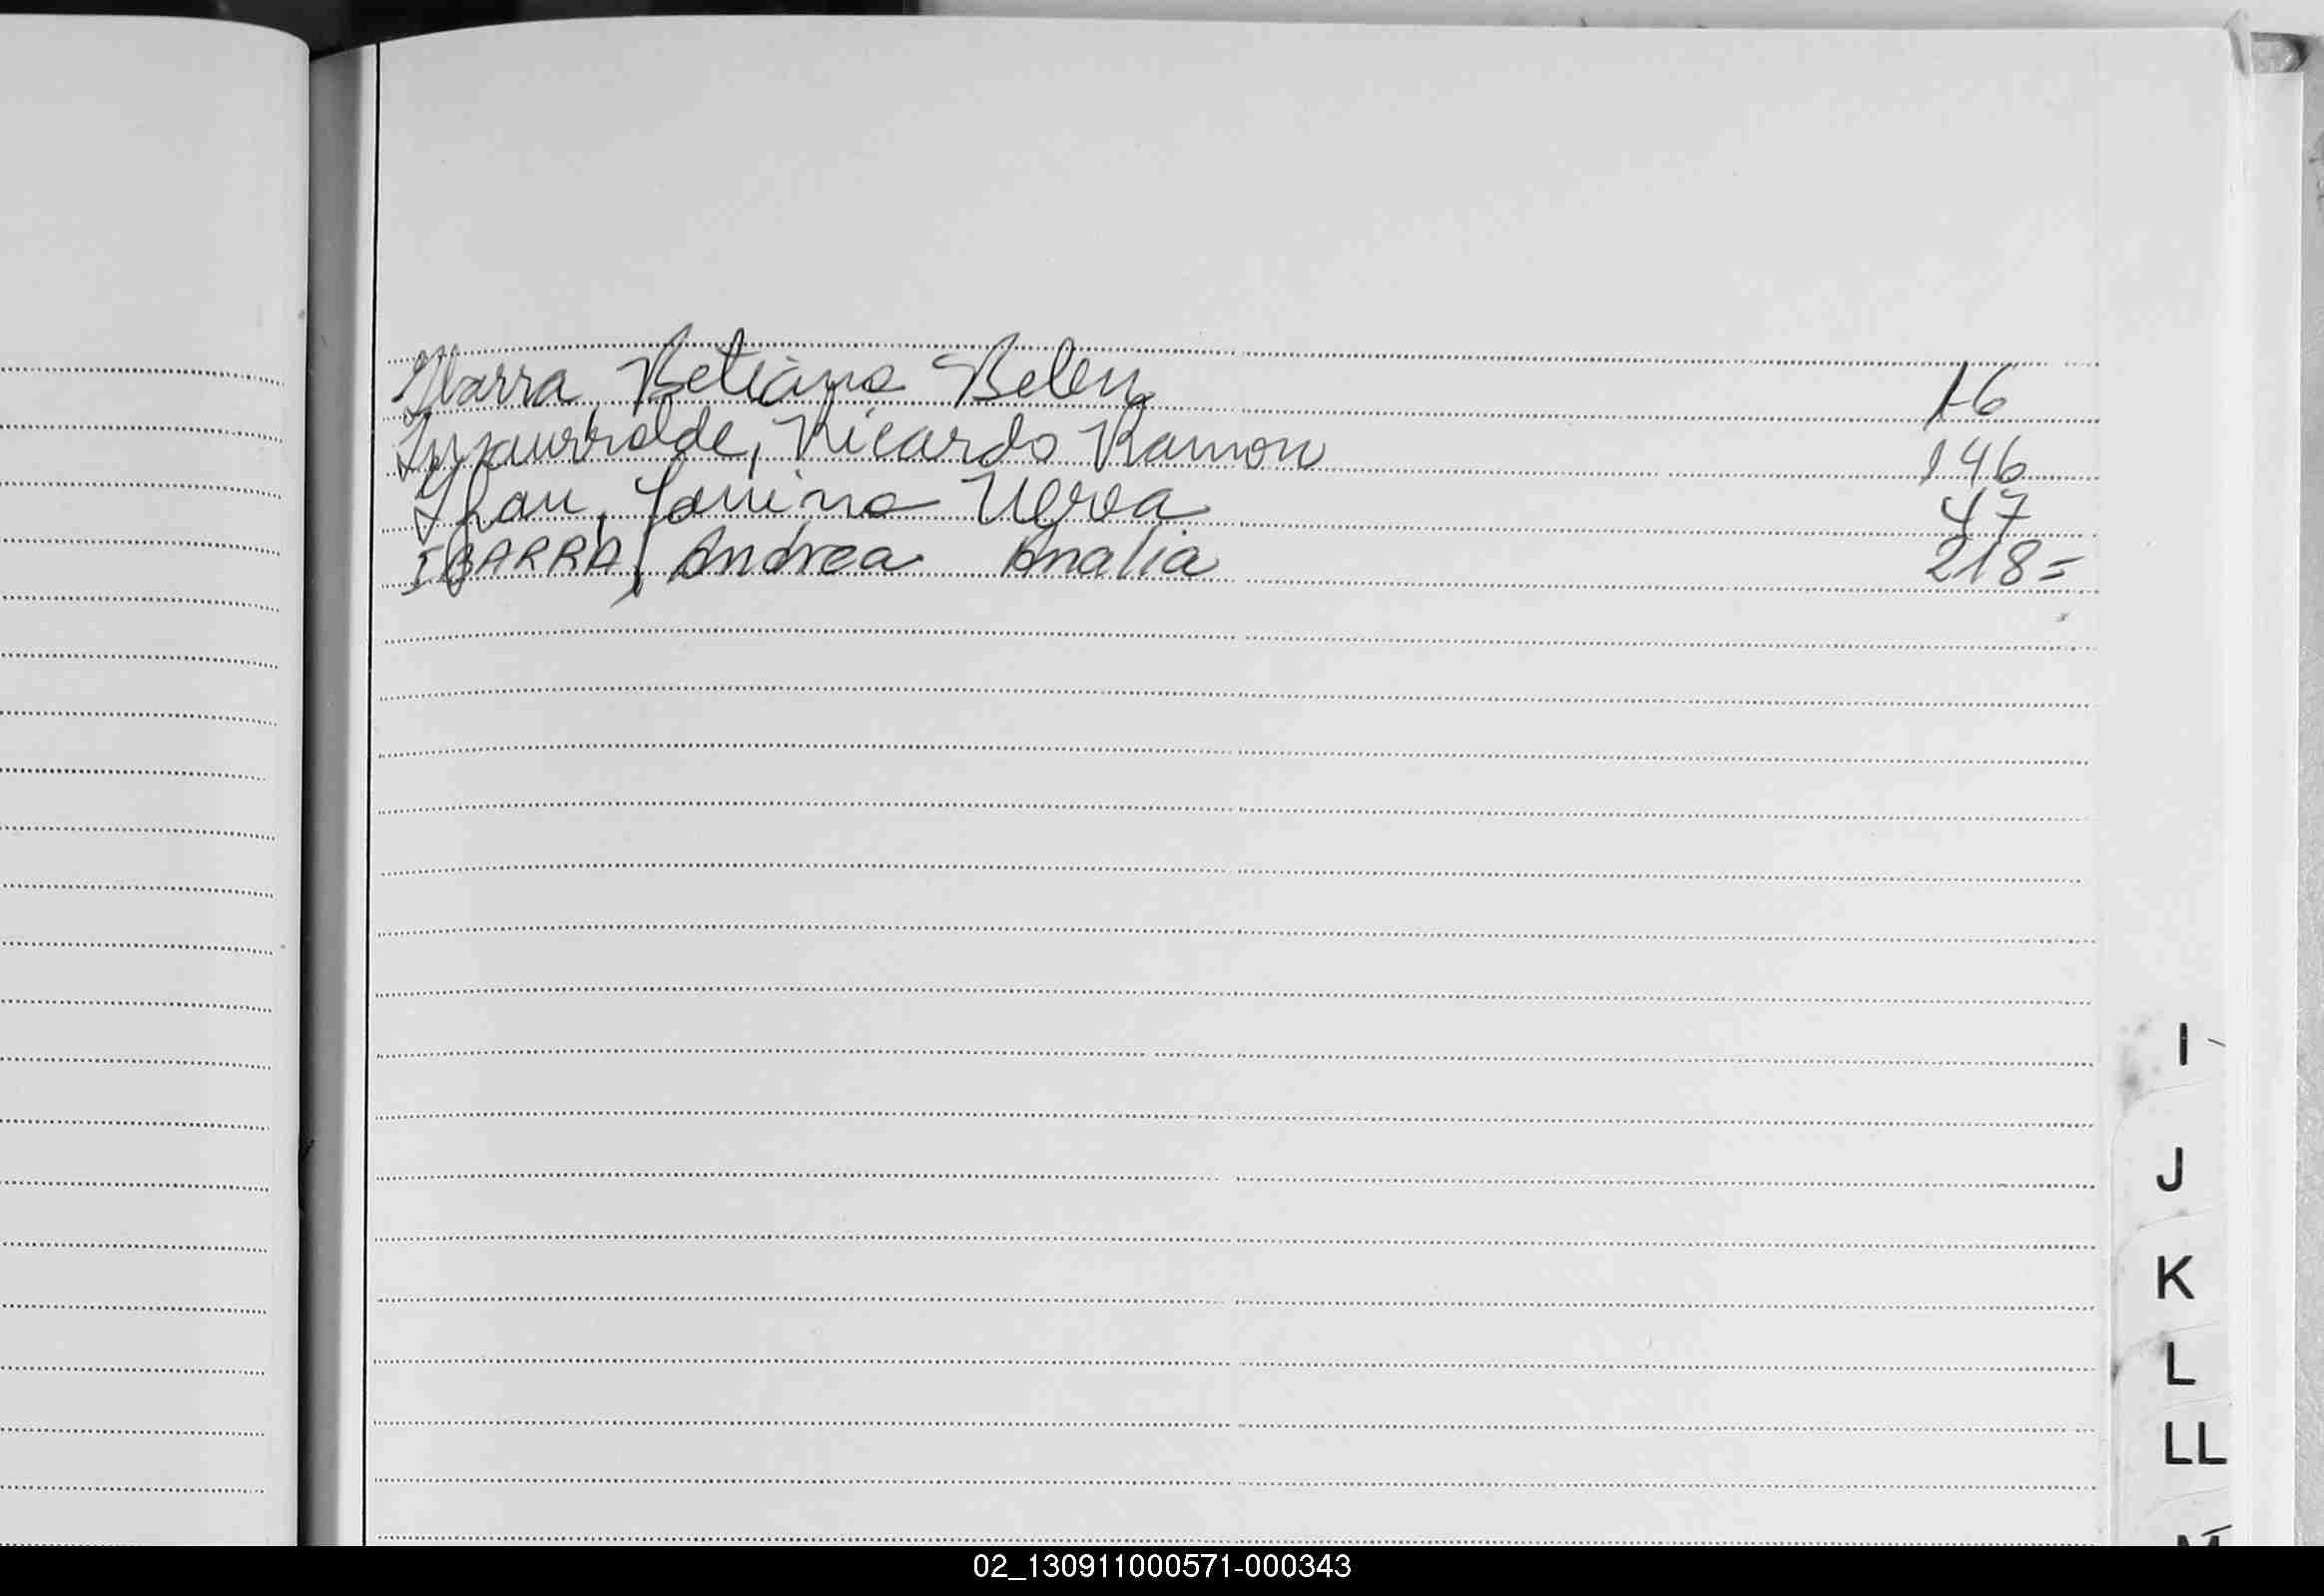 Ibarra, Betiana Belen 16
Inzaurralde, Ricardo Ramon 146
Ifran, Janina 47
IBARRA, Andrea Analia 218=
I
J
K
L
LL
M
02_130911000571-000343